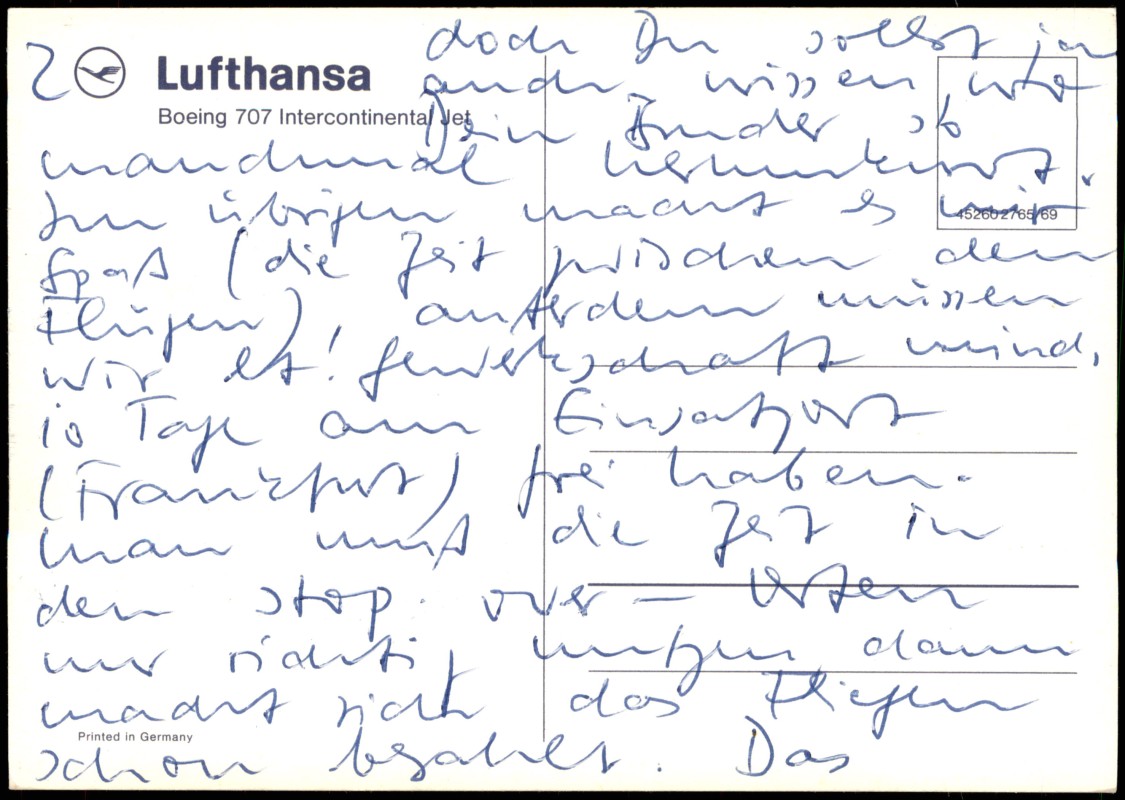 2
Lufthansa
Boeing 707 Intercontinental Jet
452602765/69
doch Du sollst ja
auch wissen, wie
Dein Bruder so
manchmal herumkurvt.
Im übrigen macht es mir
Spaß (die Zeit zwischen den
Flügen), außerdem müssen
wir lt. Gewerkschaft mind.
10 Tage am Einsatzort
(Frankfurt) frei haben.
Man muß die Zeit in
den stop-over-Orten
nur richtig nutzen dann
macht sich das Fliegen
schon bezahlt. Das
Printed in Germany